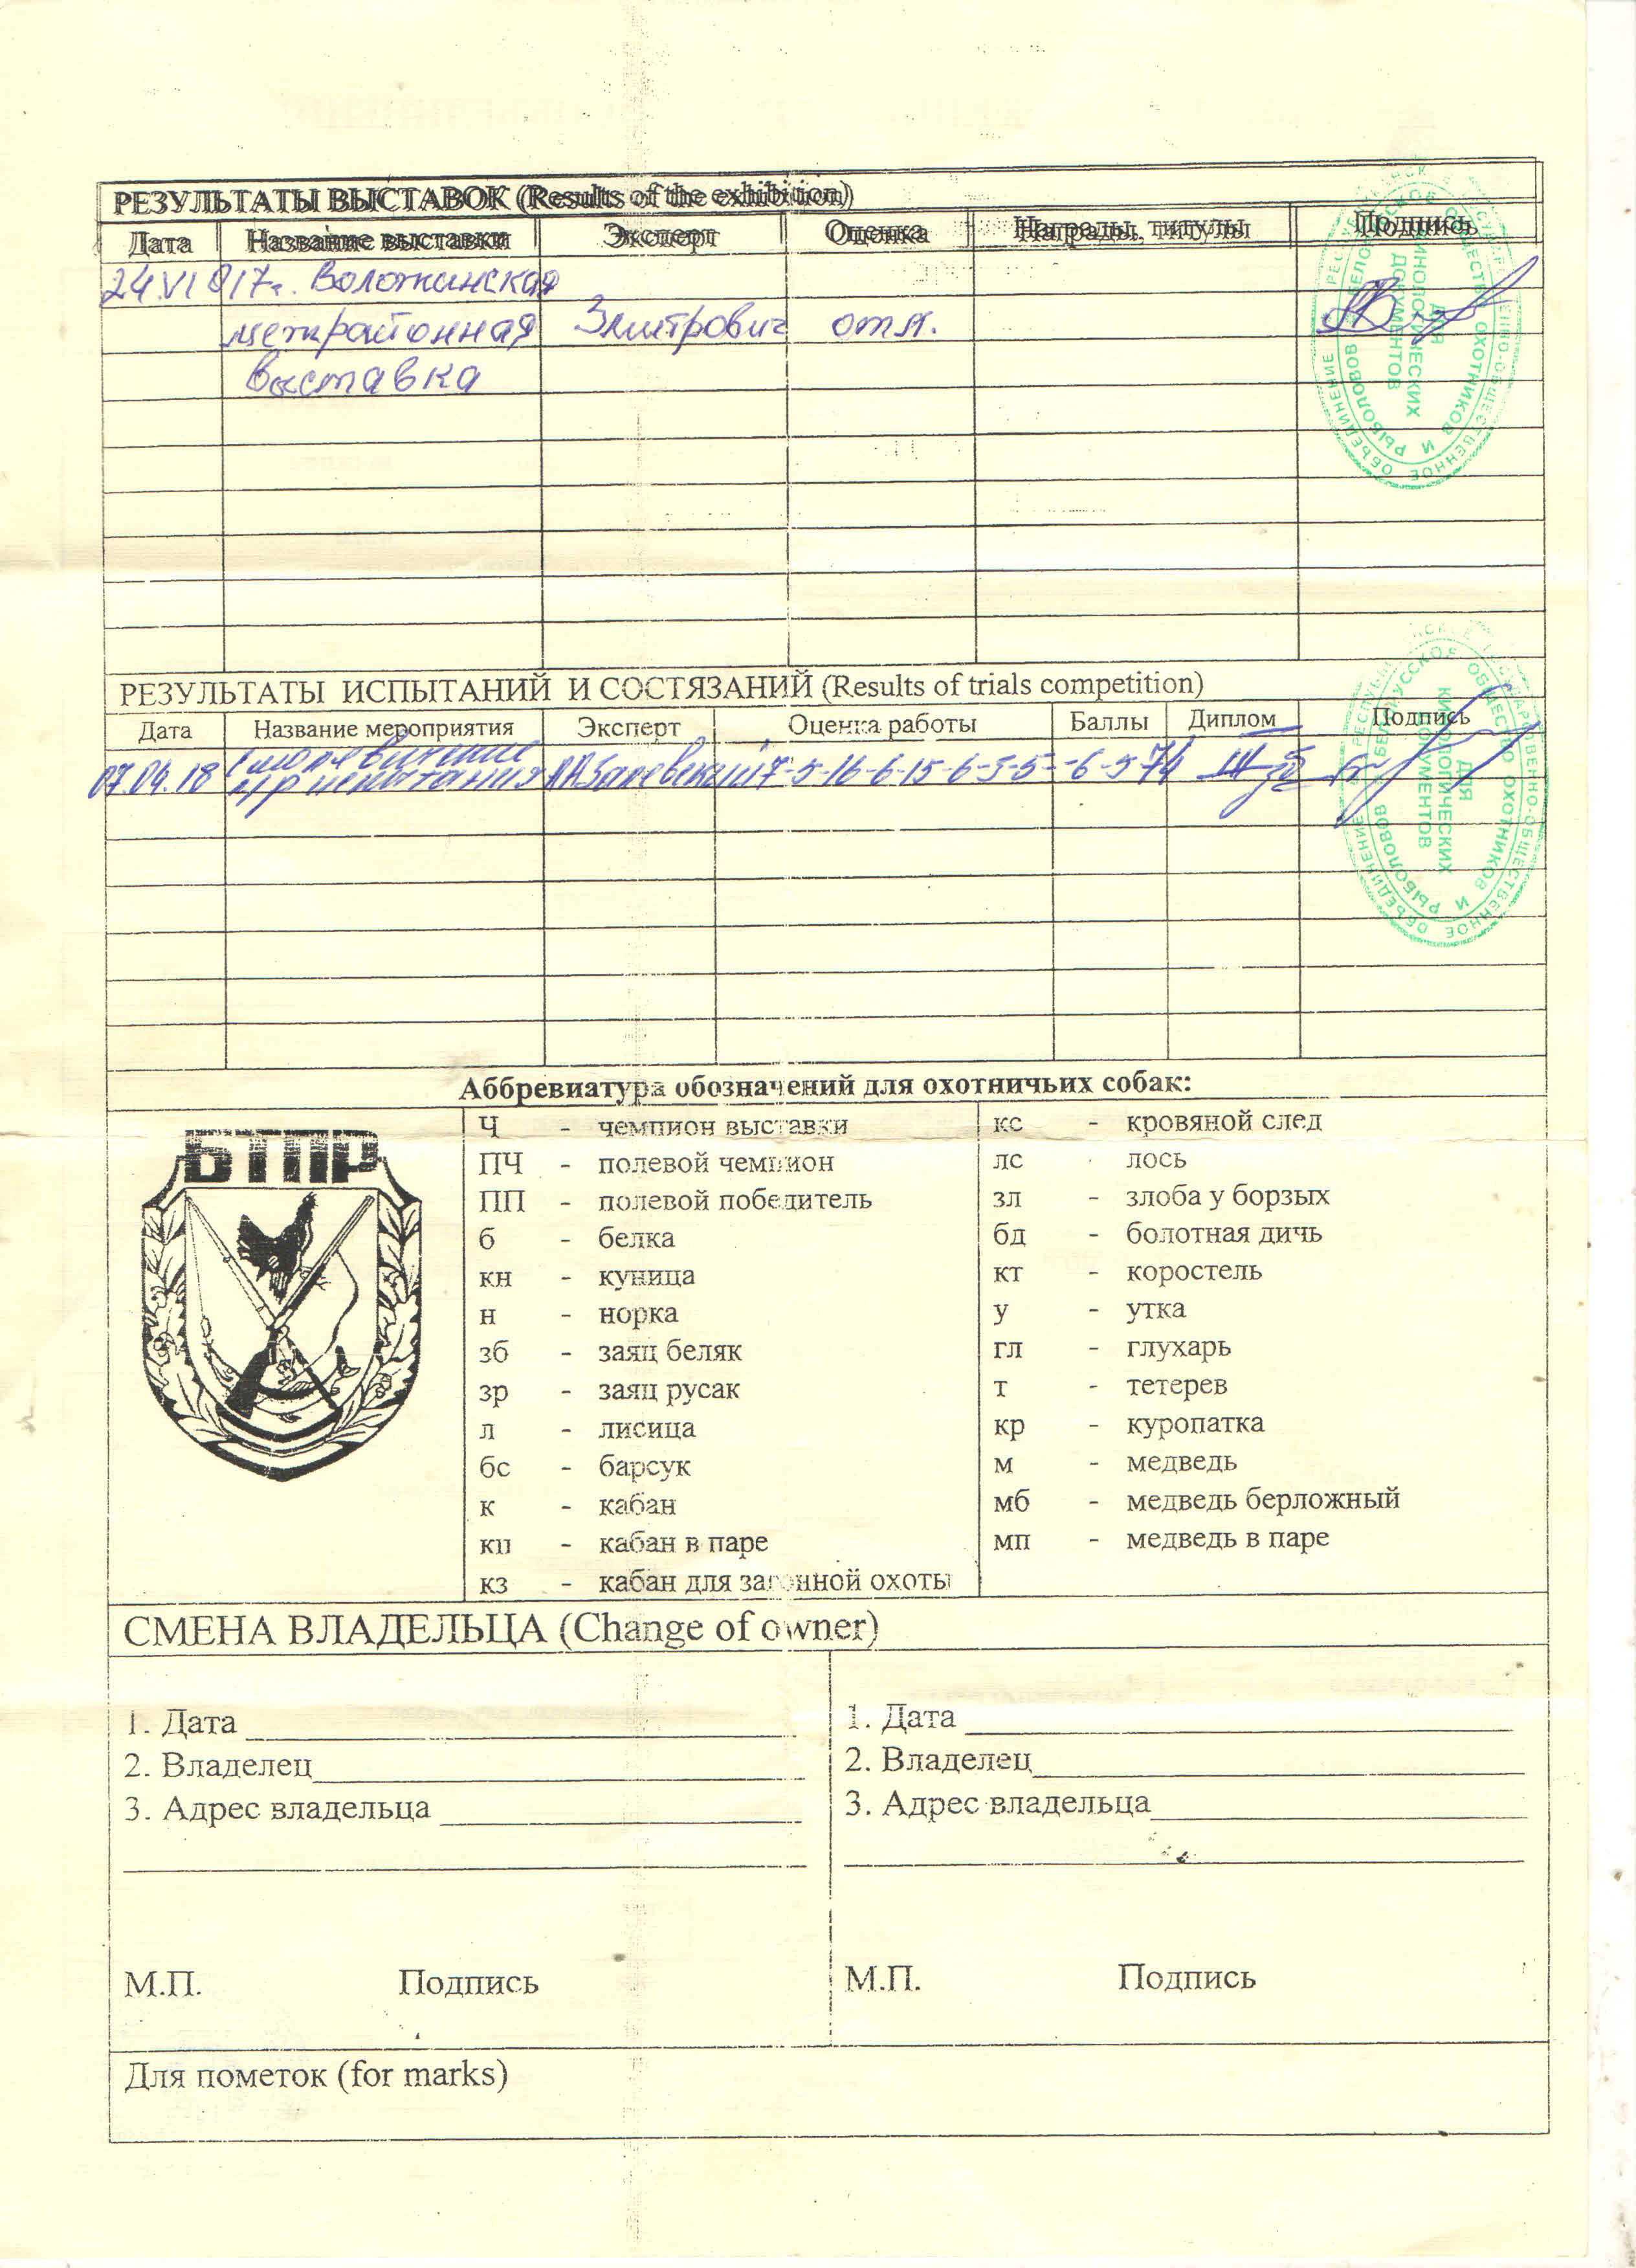 РЕЗУЛЬТАТЫ ВЫСТАВОК (Results of the exhibition)
Дата Название выставки Эксперт Оценка Награды, титулы Подпись
24.VI 017г. Воложинская
межрайонная Змитрович отл.
выставка
РЕСПУБЛИКАНСКОЕ ГОСУДАРСТВЕННО-ОБЩЕСТВЕННОЕ ОБЪЕДИНЕНИЕ
БЕЛОРУССКОЕ ОБЩЕСТВО ОХОТНИКОВ И РЫБОЛОВОВ
ДЛЯ
КИНОЛОГИЧЕСКИХ
ДОКУМЕНТОВ
РЕЗУЛЬТАТЫ ИСПЫТАНИЙ И СОСТЯЗАНИЙ (Results of trials competition)
Дата Название мероприятия Эксперт Оценка работы Баллы Диплом Подпись
07.04.18 испытания 17-5-16-6-15-6-3-5- -6-5- 74 III зб
РЕСПУБЛИКАНСКОЕ ГОСУДАРСТВЕННО-ОБЩЕСТВЕННОЕ ОБЪЕДИНЕНИЕ
БЕЛОРУССКОЕ ОБЩЕСТВО ОХОТНИКОВ И РЫБОЛОВОВ
ДЛЯ
КИНОЛОГИЧЕСКИХ
ДОКУМЕНТОВ
Аббревиатура обозначений для охотничьих собак:
БТПР
Ч - чемпион выставки
ПЧ - полевой чемпион
ПП - полевой победитель
б - белка
кн - куница
н - норка
зб - заяц беляк
зр - заяц русак
л - лисица
бс - барсук
к - кабан
кп - кабан в паре
кз - кабан для загонной охоты
кс - кровяной след
лс - лось
зл - злоба у борзых
бд - болотная дичь
кт - коростель
у - утка
гл - глухарь
т - тетерев
кр - куропатка
м - медведь
мб - медведь берложный
мп - медведь в паре
СМЕНА ВЛАДЕЛЬЦА (Change of owner)
1. Дата
2. Владелец
3. Адрес владельца
М.П. Подпись
1. Дата
2. Владелец
3. Адрес владельца
М.П. Подпись
Для пометок (for marks)